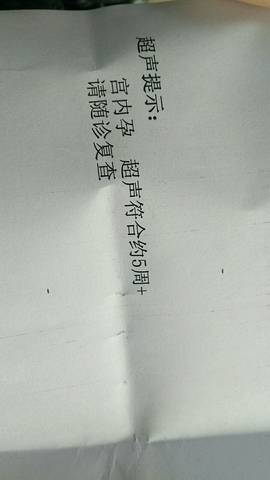 超声提示：
宫内孕 超声符合约5周+
请随诊复查